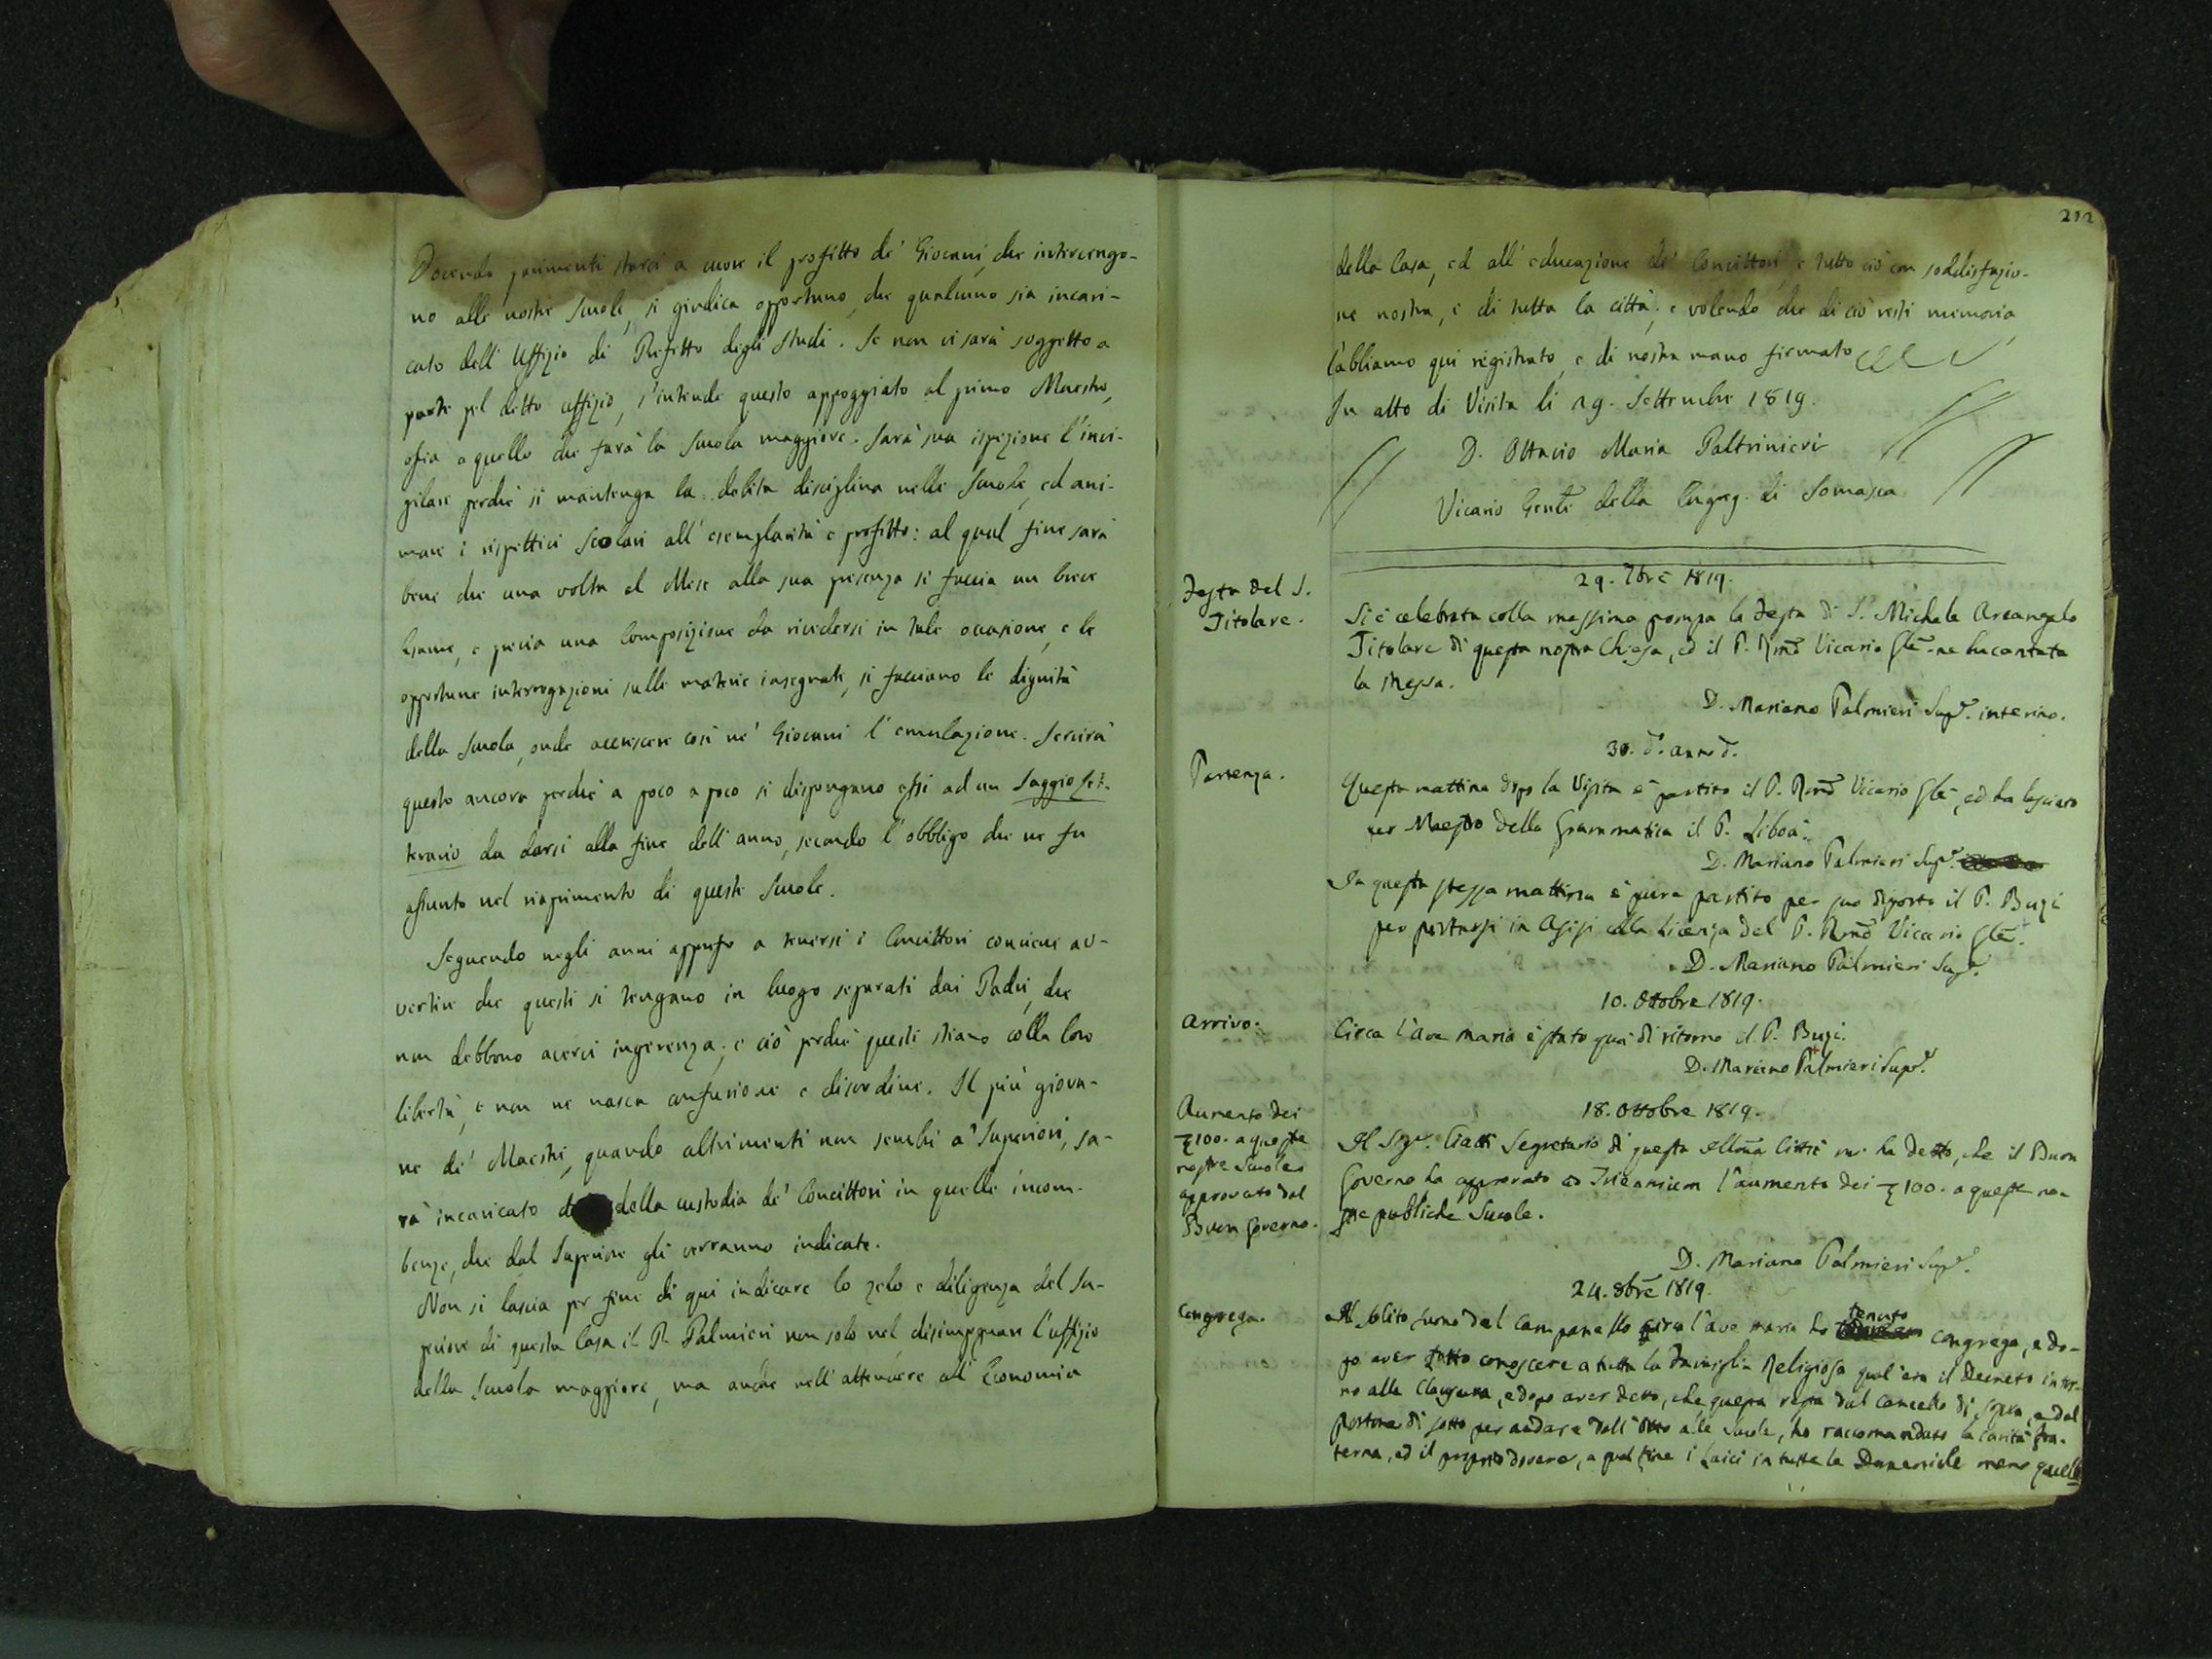 Dovendo parimenti starci a cuore il profitto de' Giovani, che intervengo-
no alle nostre Scuole, si giudica opportuno, che qualcuno sia incari-
cato dell' Uffizio di Prefetto degli Studi. Se non vi sarà soggetto a
parte pel detto uffizio, s'intende questo appoggiato al primo Maestro,
ossia a quello che farà la Scuola maggiore. Sarà sua ispezione l'invi-
gilare perchè si mantenga la debita disciplina nelle Scuole, ed ani-
mare i rispettivi Scolari all' esemplarità e profitto: al qual fine sarà
bene che una volta al Mese alla sua presenza si faccia un breve
Esame, e previa una Composizione da rivedersi in tale occasione, e le
opportune interrogazioni sulle materie insegnate, si facciano le dignità
della Scuola, onde accrescere così ne' Giovani l'emulazione. Servirà
questo ancora perchè a poco a poco si dispongano essi ad un Saggio let-
terario da darsi alla fine dell' anno, secondo l'obbligo che ne fu
assunto nel riaprimento di queste Scuole.
Seguendo negli anni appresso a tenersi i Convittori conviene av-
vertire che questi si tengano in luogo separati dai Padri, che
non debbono averci ingerenza; e ciò perchè questi stiano colla loro
libertà, e non ne nasca confusione e disordine. Il più giova-
ne de' Maestri, quando altrimenti non sembri a' Superiori, sa-
rà incaricato della custodia de' Convittori in quelle incom-
benze, che dal Superiore gli verranno indicate.
Non si lascia per fine di qui indicare lo zelo e diligenza del Su-
periore di questa Casa il P. Palmieri non solo nel disimpegnare l'uffizio
della Scuola maggiore, ma anche nell' attendere all' Economia
212
della Casa, ed all' educazione de' Convittori, e tutto ciò con soddisfazio-
ne nostra, e di tutta la città; e volendo che di ciò resti memoria
l'abbiamo qui registrato, e di nostra mano firmato
In atto di Visita li 29. Settembre 1819.
D. Ottavio Maria Paltrinieri
Vicario Genle della Congreg. di Somasca
29. 7bre 1819.
Festa del S.
Titolare.
Si è celebrata colla massima pompa la Festa di S. Michele Arcangelo
Titolare di questa nostra Chiesa, ed il P. Rmo Vicario Gle ne ha cantata
la Messa.
D. Mariano Palmieri Supe. interino.
30. do. anno do.
Partenza.
Questa mattina dopo la Visita è partito il P. Rmo Vicario Gle, ed ha lasciato
per Maestro della Grammatica il P. Liboà.
D. Mariano Palmieri Supe.
In questa stessa mattina è pure partito per suo diporto il P. Bugi
per portarsi in Asisi colla licenza del P. Rmo Vicario Gle.
D. Mariano Palmieri Supe.
10. Ottobre 1819.
Arrivo.
Circa l'Ave Maria è stato quà di ritorno il P. Bugi.
D. Mariano Palmieri Supe.
18. Ottobre 1819.
Aumento dei
100. a queste
nostre Scuole
approvato dal
Buon Governo.
Il Sigr. Ciatti Segretario di questa Illma Città mi ha detto, che il Buon
Governo ha approvato ad Triennium l'aumento dei 100. a queste no-
stre pubbliche Scuole.
D. Mariano Palmieri Supe.
24. 8bre 1819.
Congrega.
Al solito suono del Campanello circa l'ave maria ho tenuto Congrega, e do-
po aver fatto conoscere a tutta la Famiglia Religiosa qual'era il Decreto intor-
no alla Clausura, e dopo aver detto, che questa resta dal Cancello di sopra, e dal
portone di sotto per andare dall' Orto alle Scuole, ho raccomandato la carità fra-
terna, ed il proprio dovere, a qual fine i Laici in tutte le Domeniche meno quelle